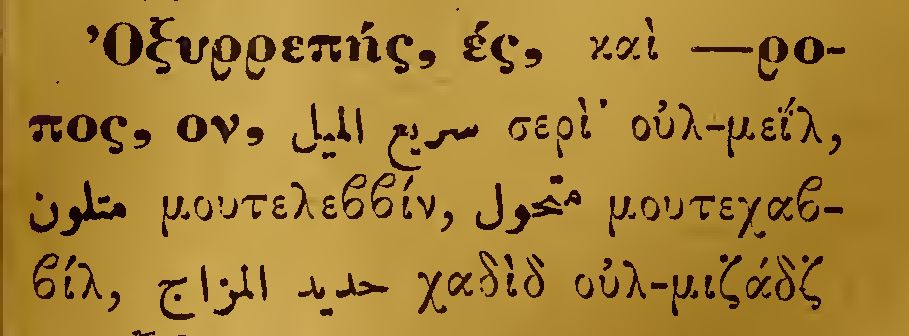 Ὀξυρρεπής, ές, καὶ —ρο-
πος, ον, سريع الميل σερὶ᾽ οὐλ-μεΐλ,
متلون μουτελεββίν, متحول μουτεχαβ-
βίλ, حديد المزاج χαδὶδ οὐλ-μιζάδζ